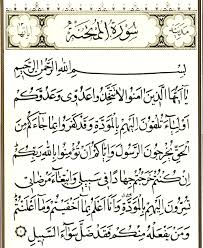 سُورَةُ الْمُمْتَحِنَةِ
بِسْمِ اللَّهِ الرَّحْمَٰنِ الرَّحِيمِ
يَا أَيُّهَا الَّذِينَ آمَنُوا لَا تَتَّخِذُوا عَدُوِّي وَعَدُوَّكُمْ
أَوْلِيَاءَ تُلْقُونَ إِلَيْهِمْ بِالْمَوَدَّةِ وَقَدْ كَفَرُوا بِمَا جَاءَكُمْ مِنَ
الْحَقِّ يُخْرِجُونَ الرَّسُولَ وَإِيَّاكُمْ أَنْ تُؤْمِنُوا بِاللَّهِ رَبِّكُمْ
إِنْ كُنْتُمْ خَرَجْتُمْ جِهَادًا فِي سَبِيلِي وَابْتِغَاءَ مَرْضَاتِي
تُسِرُّونَ إِلَيْهِمْ بِالْمَوَدَّةِ وَأَنَا أَعْلَمُ بِمَا أَخْفَيْتُمْ وَمَا أَعْلَنْتُمْ
وَمَنْ يَفْعَلْهُ مِنْكُمْ فَقَدْ ضَلَّ سَوَاءَ السَّبِيلِ